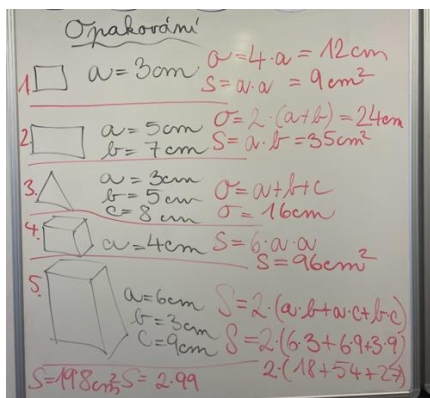 Opakování
1. a = 3cm
σ = 4·a = 12cm
S = a·a = 9cm²
2. a = 5cm
b = 7cm
σ = 2·(a+b) = 24cm
S = a·b = 35cm²
3. a = 3cm
b = 5cm
c = 8cm
σ = a+b+c
σ = 16cm
4. a = 4cm
S = 6·a·a
S = 96cm²
5. a = 6cm
b = 3cm
c = 9cm
S = 2·(a·b+a·c+b·c)
S = 2·(6·3+6·9+3·9)
2·(18+54+27)
S = 198cm² S = 2·99